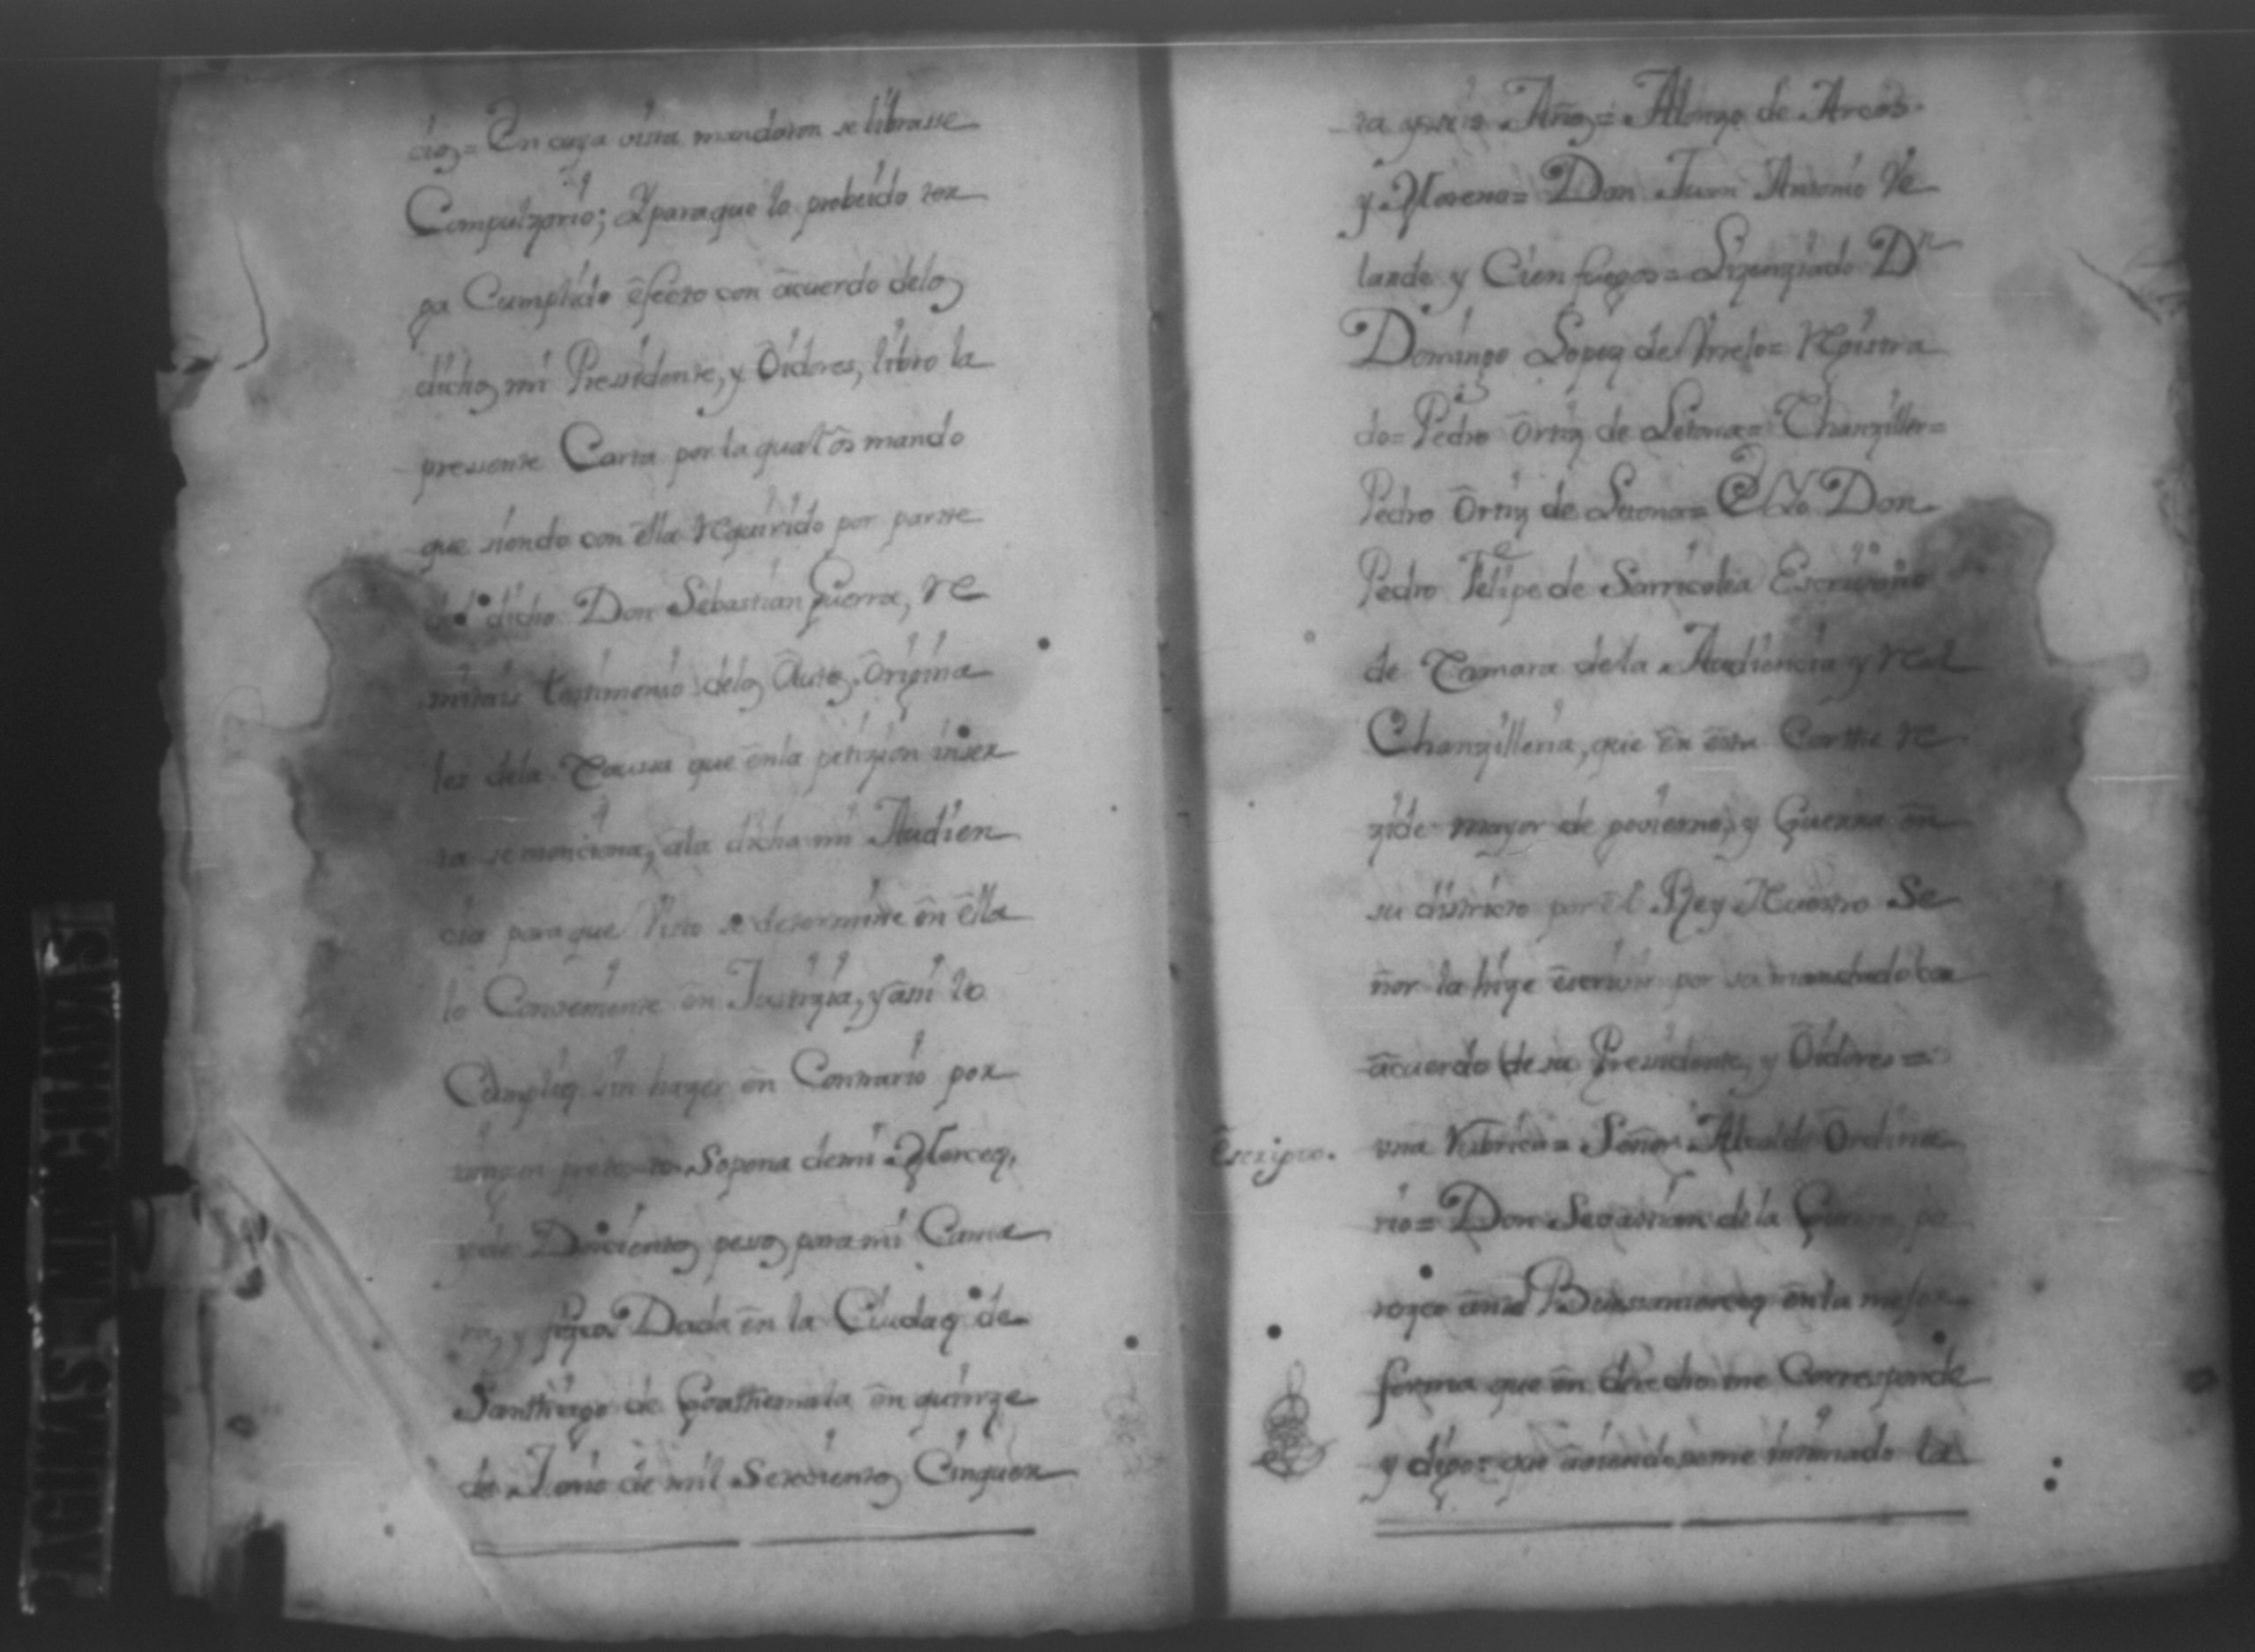 cios = En cuya vista mandaron se librasse
Compulzorio; Y para que lo probeido ten
ga Cumplido êfecto con âcuerdo delos
dichos mi Presidente, y Ôidores, libro la
pressente Carta por la qual ôs mando
que siendo con êlla requirido por partte
del dicho Don Sebastian Guerra, re
mitais testimonio delos Âutos Ôrigina
les dela Caussa que ênla petizion inser
ta se menciona, ala dicha mi Audien
cia para que Visto se determine ên êlla
lo Conveniente ên Justizia, y âssi lo
Cumplid sin hazer ên Contrario por
ningun pretexto Sopena demi Merced,
y de Doscientos pesos para mi Cama
ra, y fisco Dada ên la Ciudad de
Santhiago de Goathemala ên quinze
de Junio de mil Setecientos Cinquen
ta y seis Años = Alonzo de Arcos
y Moreno = Don Juan Antonio Ve
larde y Cienfuegos = Lizenziado Dn
Domingo Lopez de Urrelo = Rexistra
do = Pedro Ôrtiz de Letona = Chanziller =
Pedro Ôrtiz de Letona = Yo Don
Pedro Felipe de Sarricolea Escrivano
de Camara dela Audiencia y Real
Chanzilleria, que ên êsta Cortte re
zide mayor de govierno, y Guerra ên
su distrito por êl Rey Nuestro Se
ñor la hize êscrivir por su mandado con
âcuerdo de su Presidente, y Ôidores =
Escripto.
una Rubrica = Señor Alcalde Ôrdina
rio = Don Sevastian dela Guerra, pa
rezco ântel Buessamerced ênla mejor
forma que ên derecho me Corresponde
y digo: que âviendoseme intimado la
PAGINAS MANCHADAS